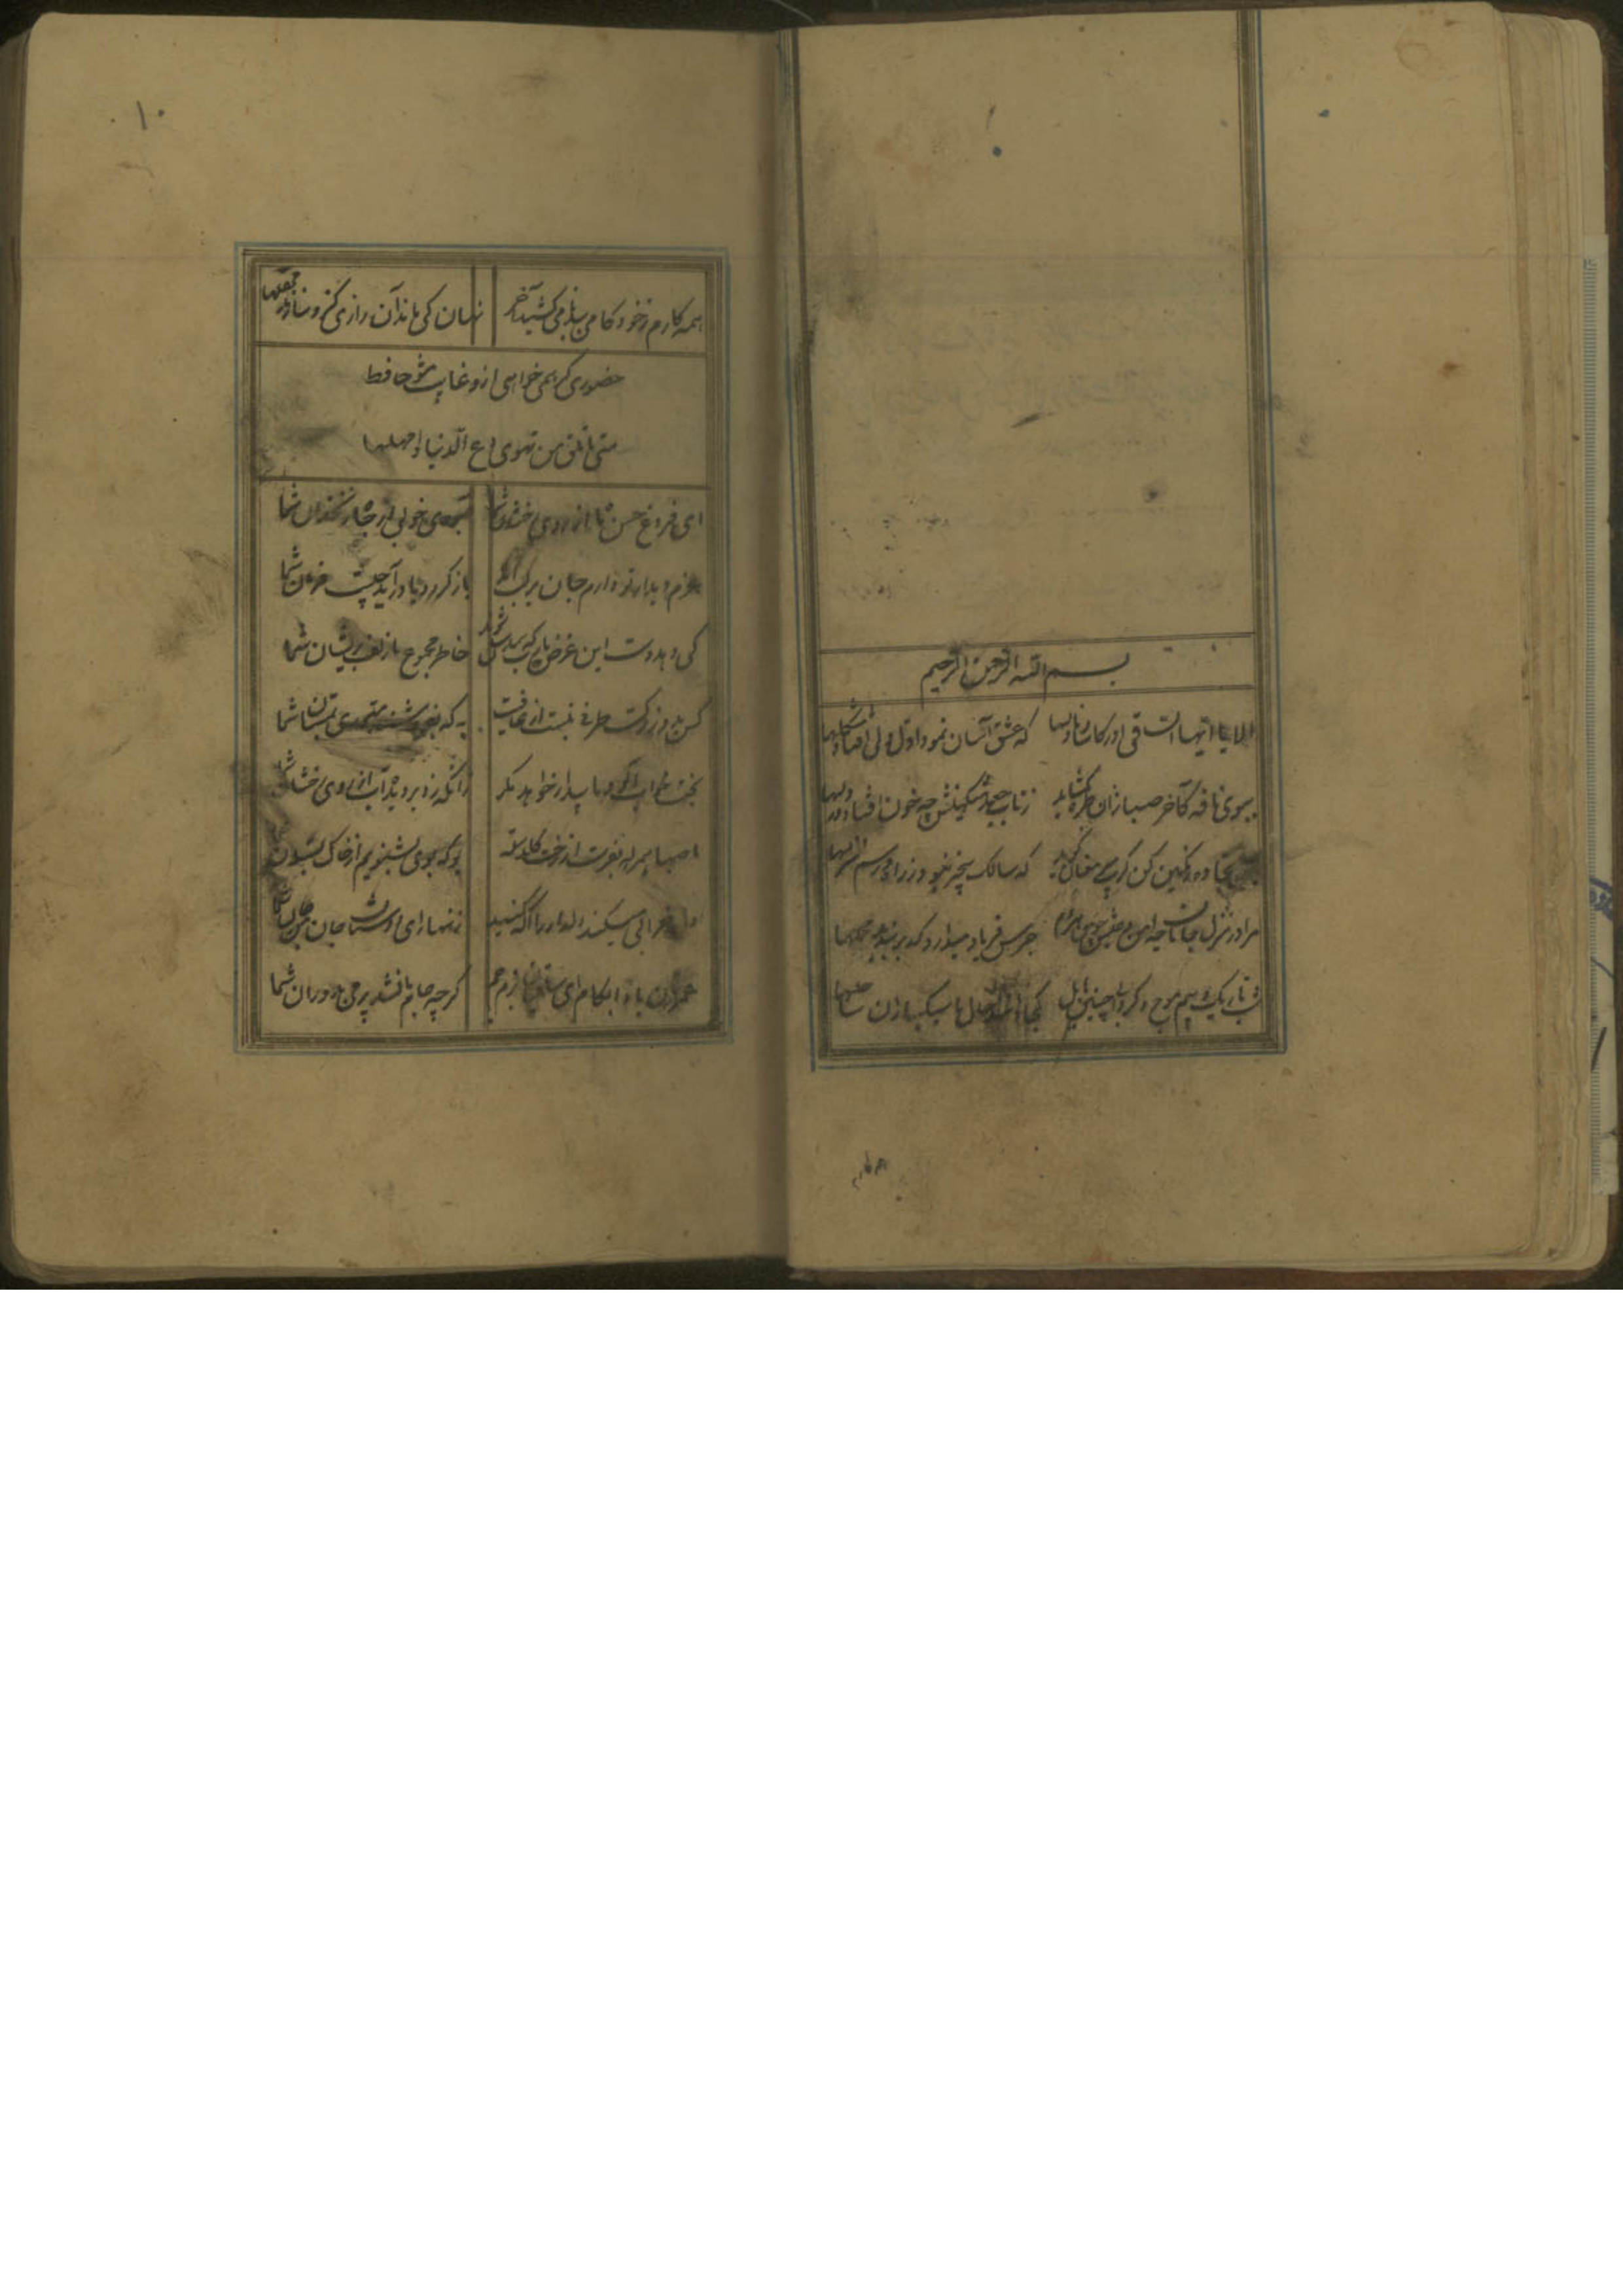 بسم الله الرحمن الرحیم
الا یا ایها الساقی ادر کاسا و ناولها که عشق آسان نمود اول ولی افتاد مشکلها
ببوی نافه کآخر صبا زان طره بگشاید ز تاب جعد مشکینش چه خون افتاد در دلها
سجاده رنگین کن گرت پیر مغان گوید که سالک بیخبر نبود ز راه و رسم منزلها
مرا در منزل جانان چه امن و عیش چون هر دم جرس فریاد میدارد که بربندید محملها
شب تاریک و بیم موج و گردابی چنین هایل کجا دانند حال ما سبکباران ساحلها
همه کارم
۱۰
همه کارم ز خود کامی ببدنامی کشید آخر نهان کی ماند آن رازی کزو سازند محفلها
حضوری گر همی خواهی ازو غایب مشو حافظ
متی ما تلق من تهوی دع الدنیا و اهملها
ای فروغ حسن ماه از روی رخشان شما آب روی خوبی از چاه زنخدان شما
عزم دیدار تو دارد جان بر لب آمده باز گردد یا در آید چیست فرمان شما
کی دهد دست این غرض یارب که همدستان شوند خاطر مجموع ما زلف پریشان شما
کس بدور نرگست طرفی نبست از عافیت به که نفروشند مستوری بمستان شما
بخت خواب آلود ما بیدار خواهد شد مگر زانکه زد بر دیده آب از روی رخشان شما
با صبا همراه بفرست از رخت گلدسته بو که بوی بشنویم از خاک بستان شما
دل خرابی میکند دلدار را آگه کنید زنهار ای دوستان جان من و جان شما
عمرتان باد و مراد ای ساقیان بزم جم گرچه جام ما نشد پر می بدوران شما